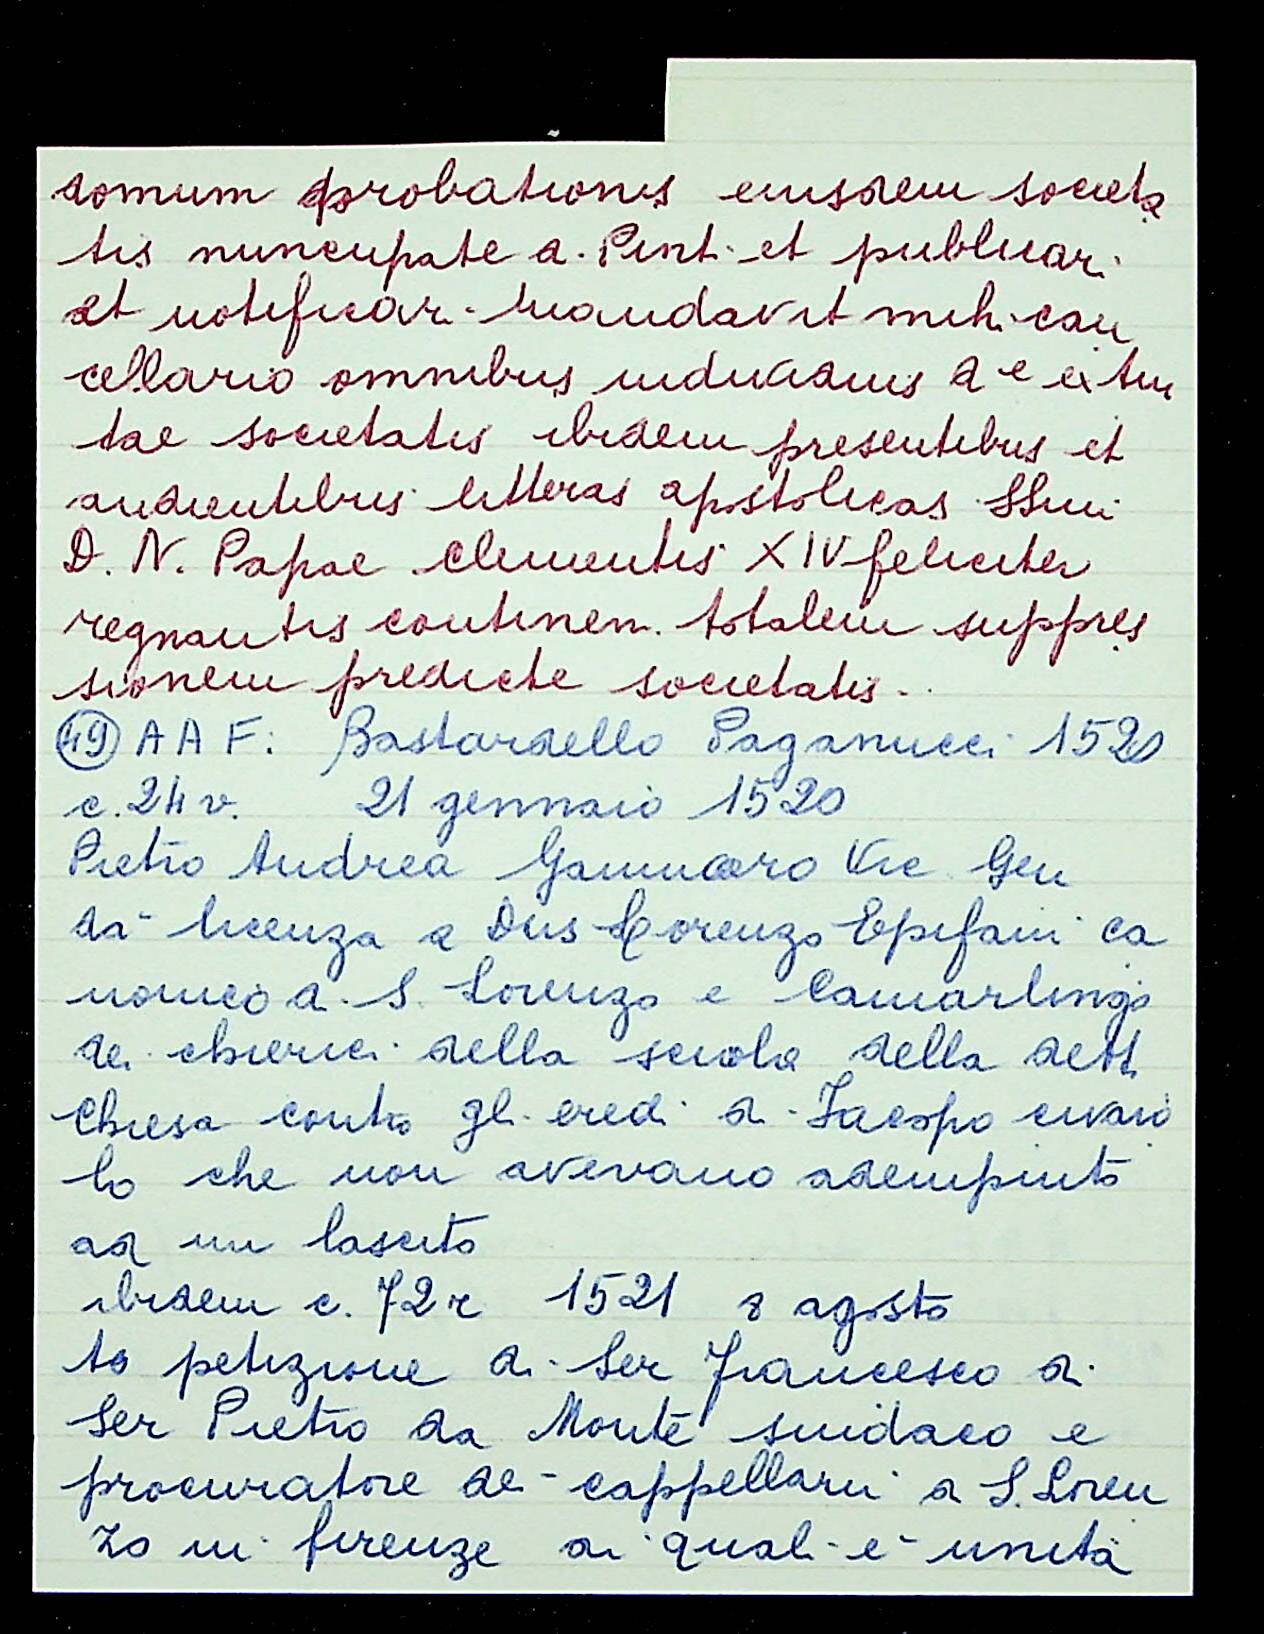 domum probationis eiusdem societa
tis nuncupate a. Pint. et publicar.
et notificar. mandavit mihi can
cellario omnibus individuis de extin
tae societatis ibidem presentibus et
audientibus litteras apostolicas SSmi
D. N. Papae Clementis XIV feliciter
regnantis continen. totalem suppres
sionem predicte societatis.
49 A A F. Bastardello Paganucci 1520
c. 24 v. 21 gennaio 1520
Pietro Andrea Vic Gen
da licenza a Dns Lorenzo Epifani ca
nonico di S. Lorenzo e Camarlingo
dei chierici della scuola della dett
Chiesa contro gli eredi di Iacopo civaio
lo che non avevano adempiuto
ad un lascito
ibidem c. 72 r 1521 8 agosto
to petizione di Ser Francesco di
Ser Pietro da Monte sindaco e
procuratore dei cappellani di S. Loren
zo in firenze ai quali è unita